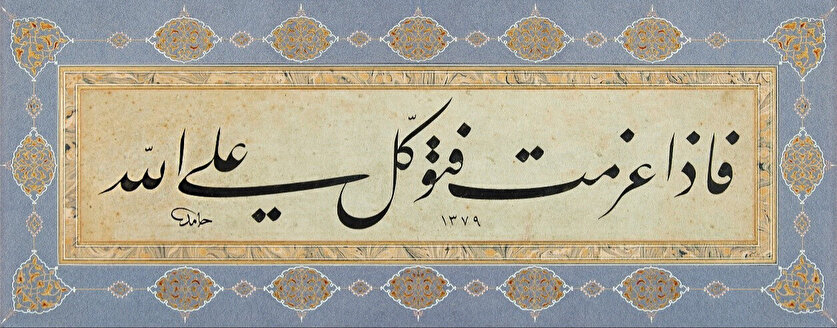 فاذا عزمت فتوكّل علي الله
١٣٧٩
حامد